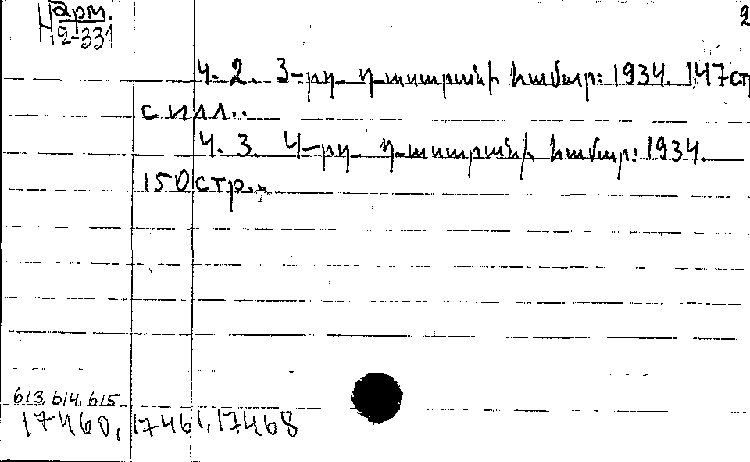 Арм.
2-331
2
Ч. 2. 3-րդ դասարանի համար: 1934. 147 ст
с илл.
Ч. 3. 4-րդ դասարանի համար: 1934.
150 стр.
613, 614, 615
17460, 17461, 17468